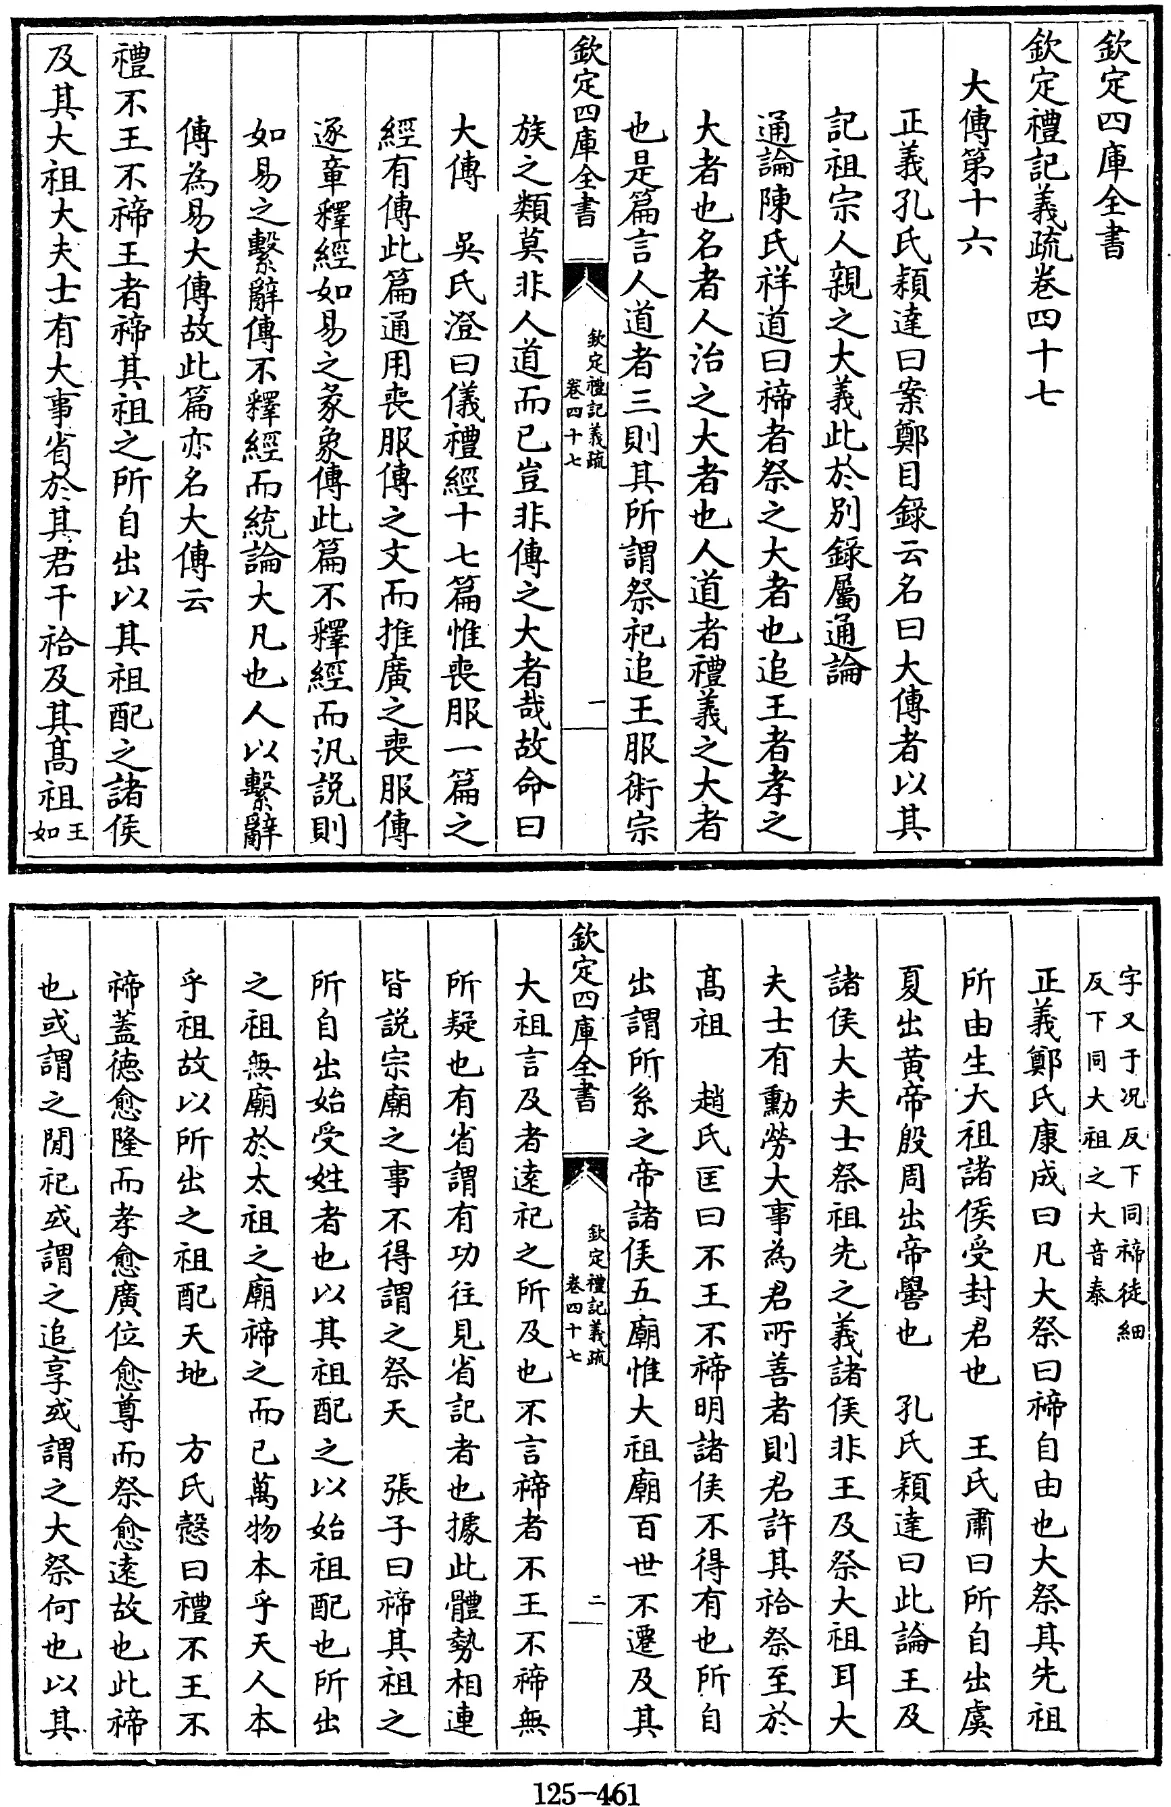 欽定四庫全書
欽定禮記義疏卷四十七
大傳第十六
正義孔氏穎達曰案鄭目錄云名曰大傳者以其
記祖宗人親之大義此於別錄屬通論
通論陳氏祥道曰禘者祭之大者也追王者孝之
大者也名者人治之大者也人道者禮義之大者
也是篇言人道者三則其所謂祭祀追王服術宗
欽定四庫全書
欽定禮記義疏
卷四十七
一
族之類莫非人道而已豈非傳之大者哉故命曰
大傳 吳氏澄曰儀禮經十七篇惟喪服一篇之
經有傳此篇通用喪服傳之文而推廣之喪服傳
逐章釋經如易之彖象傳此篇不釋經而汎説則
如易之繫辭傳不釋經而統論大凡也人以繫辭
傳為易大傳故此篇亦名大傳云
禮不王不禘王者禘其祖之所自出以其祖配之諸侯
及其大祖大夫士有大事省於其君干祫及其髙祖王如
字又于况反下同禘徒細
反下同大祖之大音泰
正義鄭氏康成曰凡大祭曰禘自由也大祭其先祖
所由生大祖諸侯受封君也 王氏肅曰所自出虞
夏出黄帝殷周出帝嚳也 孔氏穎達曰此論王及
諸侯大夫士祭祖先之義諸侯非王及祭大祖耳大
夫士有勳勞大事為君所善者則君許其祫祭至於
髙祖 趙氏匡曰不王不禘明諸侯不得有也所自
出謂所系之帝諸侯五廟惟大祖廟百世不遷及其
欽定四庫全書
欽定禮記義疏
卷四十七
二
大祖言及者逺祀之所及也不言禘者不王不禘無
所疑也有省謂有功往見省記者也據此體勢相連
皆説宗廟之事不得謂之祭天 張子曰禘其祖之
所自出始受姓者也以其祖配之以始祖配也所出
之祖無廟於太祖之廟禘之而已萬物本乎天人本
乎祖故以所出之祖配天地 方氏慤曰禮不王不
禘蓋德愈隆而孝愈廣位愈尊而祭愈逺故也此禘
也或謂之閒祀或謂之追享或謂之大祭何也以其
125-461